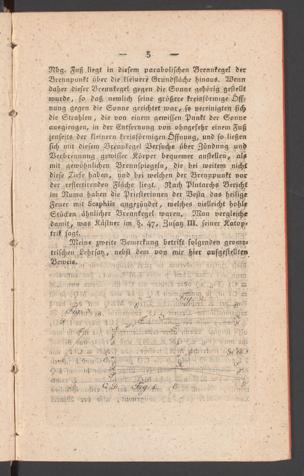 — 5 —
Nbg. Fuß liegt in diesem parabolischen Brennkegel der
Brennpunkt über die kleinere Grundfläche hinaus. Wenn
daher dieser Brennkegel gegen die Sonne gehörig gestellt
wurde, so daß nemlich seine größere kreisförmige Öff-
nung gegen die Sonne gerichtet war, so vereinigten sich
die Strahlen, die von einem gewissen Punkt der Sonne
ausgiengen, in der Entfernung von ohngefehr einem Fuß
jenseits der kleinern kreisförmigen Öffnung, und so ließen
sich mit diesem Brennkegel Versuche über Zündung und
Verbrennung gewisser Körper bequemer anstellen, als
mit gewöhnlichen Brennspiegeln, die bei weitem nicht
diese Tiefe haben, und bei welchen der Brennpunkt vor
der reflectirenden Fläche liegt. Nach Plutarchs Bericht
im Numa haben die Priesterinnen der Vesta das heilige
Feuer mit Scaphiis angezündet, welches vielleicht hohle
Stücken ähnlicher Brennkegel waren. Man vergleiche
damit, was Kästner im §. 47, Zusatz III. seiner Katop-
trik sagt.
Meine zweite Bemerkung betrift folgenden geome-
trischen Lehrsatz, nebst dem von mir hier aufgestellten
Beweis.